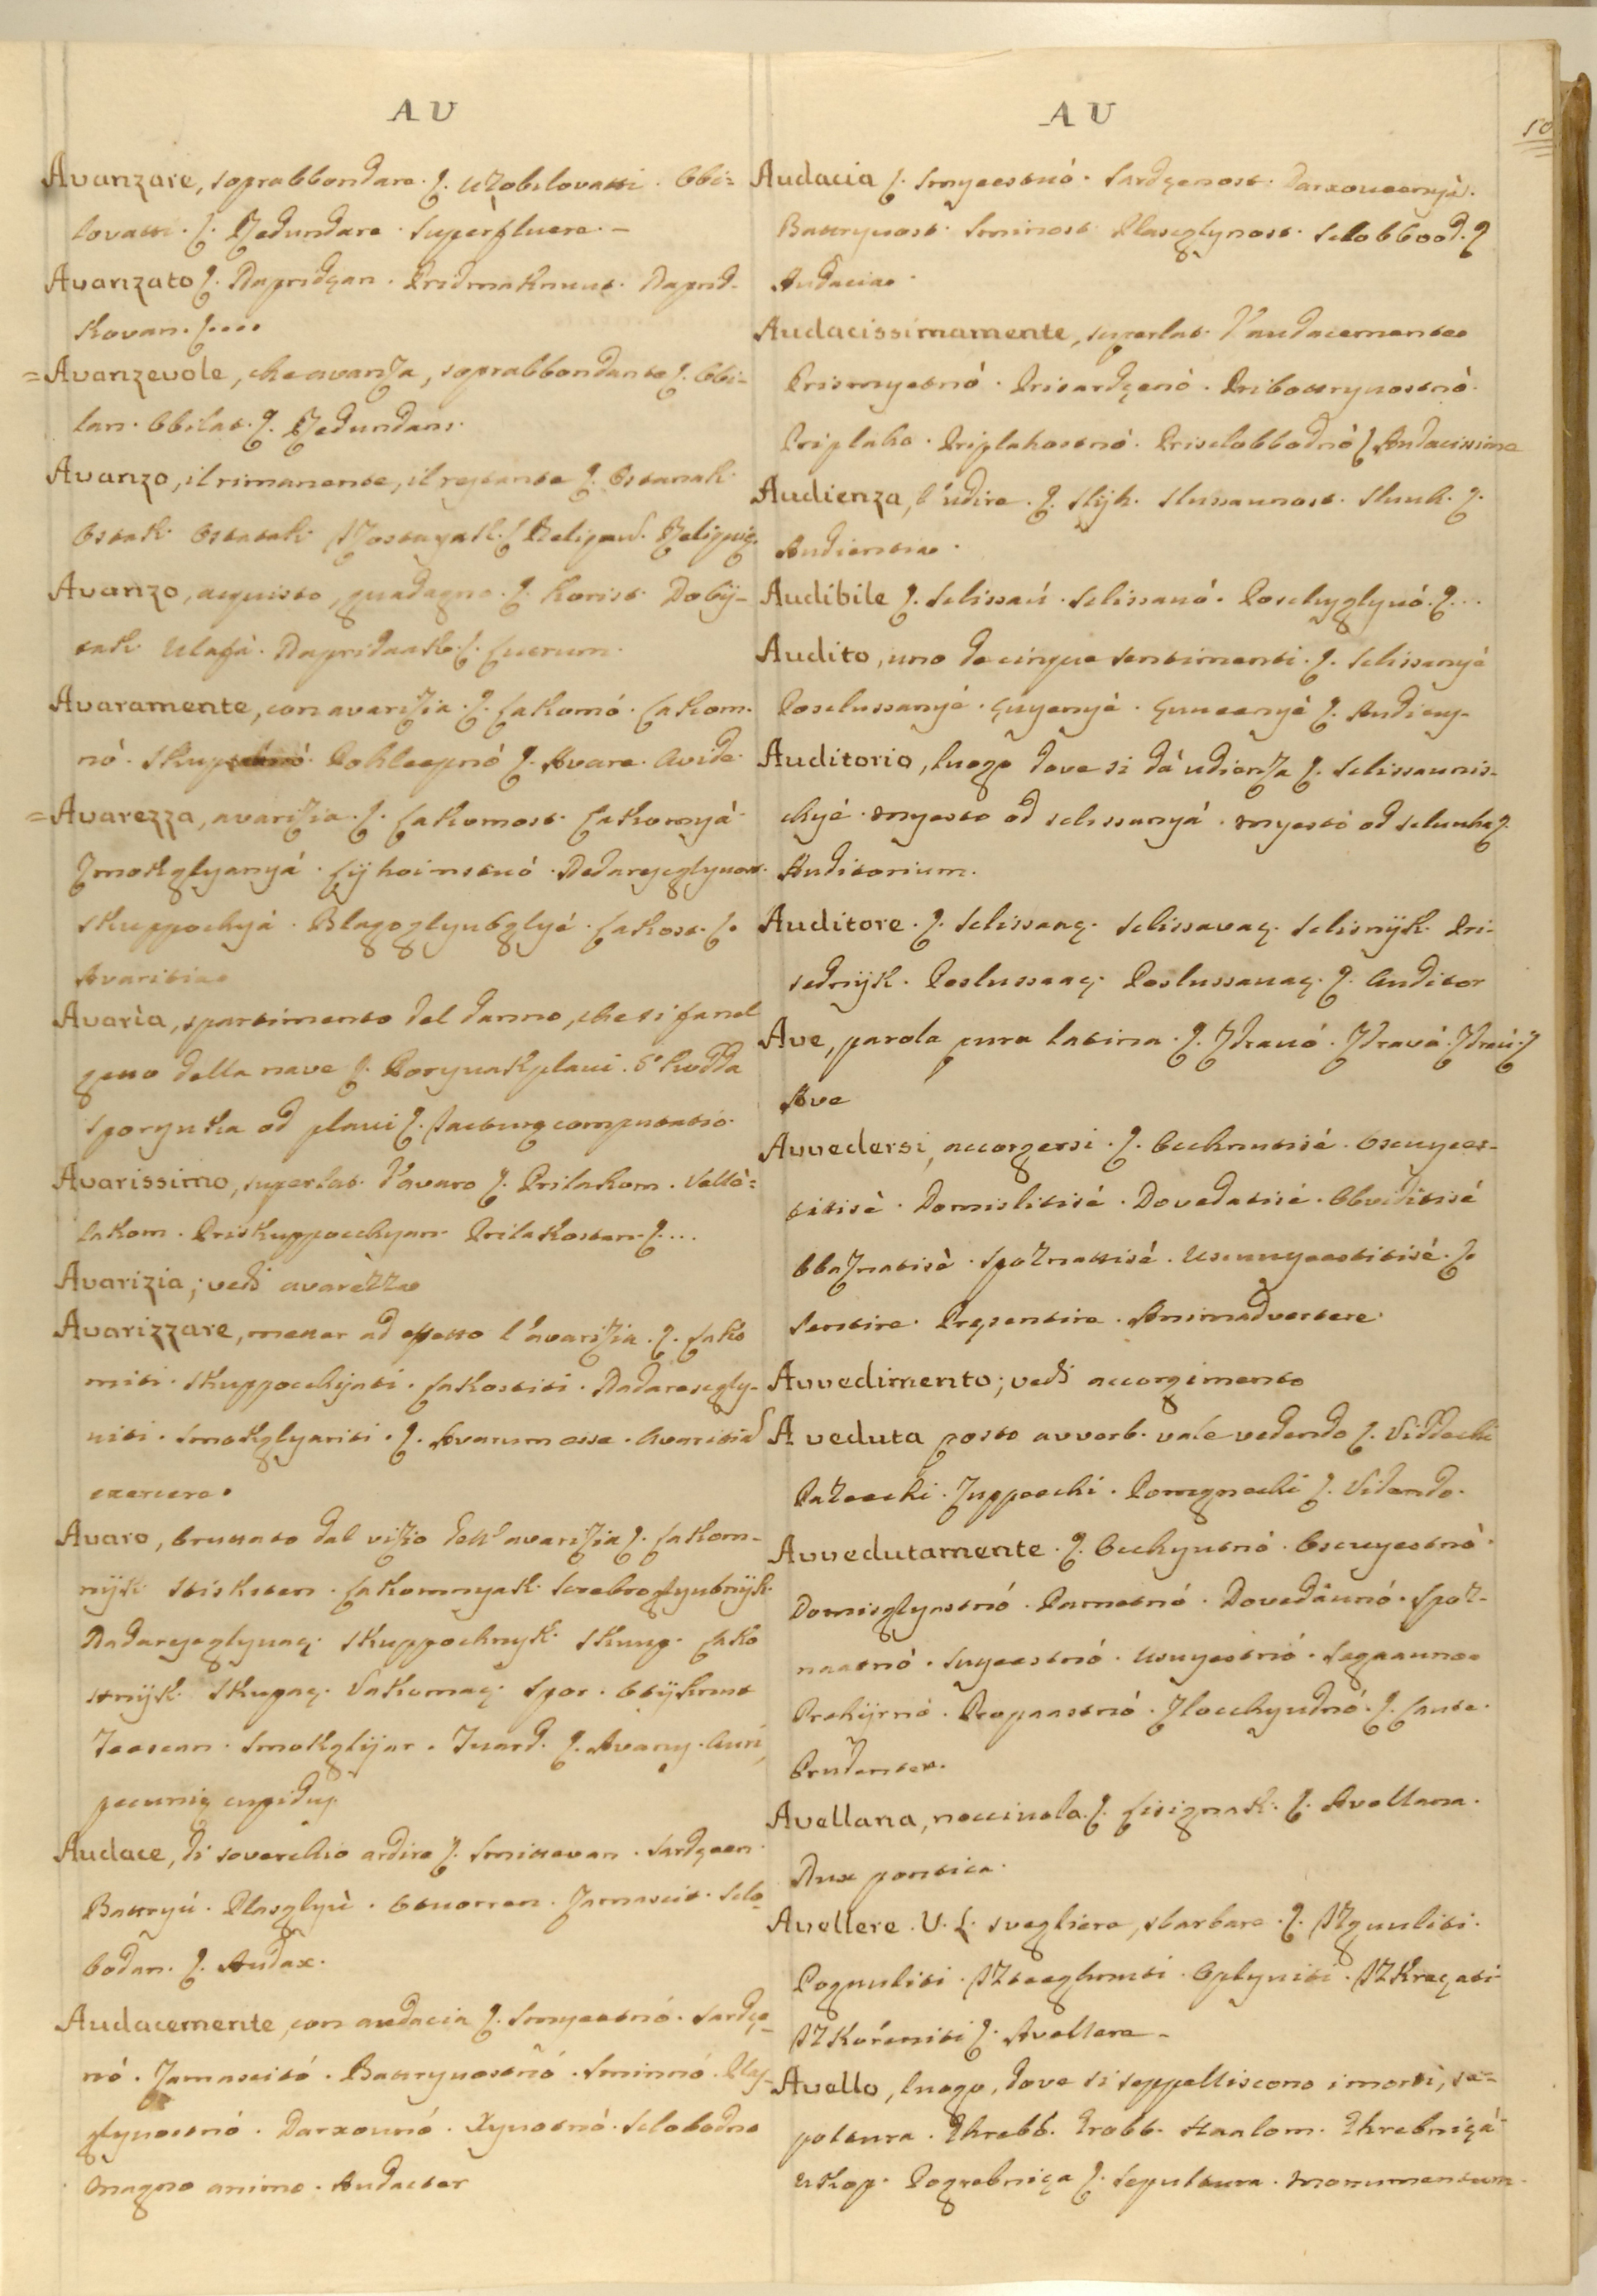 AU
Avanzare, soprabbondare. ſ. uzobilovatti. Obi=
lovatti. ſ. Redundare. Superfluere. –
Avanzato ſ. Napridçan. Pridmaknuut. Naprid-
kovan. ſ....
= Avanzevole, che avanza, soprabbondante ſ. Obi-
lan. Obilat. ſ. Redundans.
Avanzo, il rimanente, il restante ſ. Ostanak.
Ostak. Ostatak. Izostayak. ſ. Reliquus. Reliquię.
Avanzo, acquisto, guadagno. ſ. Korist. Dobÿ-
tak. Ulafà. Napridaak. ſ. Lucrum.
Avaramente, con avarizia. ſ. Lakomó. Lakom-
nó. Pohleepnó ſ. Avare. Avide.
= Avarezza, avarizia. ſ. Lakomost. Lakomyá.
Zmokglyanyá. Nedarexglyuost.
Skuppochyá. Blagoglyubglyé. Lakost. ſ.
Avaritia.
Avarìa, spartimento del danno, che si fa nel
geuo della nave ſ. Poryuakplavi. Skodda
sporyuka od plavi ſ. Iacturę computatio.
Avarissimo, superlat. d'avaro ſ. Prilakom. Vellò=
lakom. Priskuppocchyan. Prilakostan. ſ....
Avarizia; vedi avarezza
Avarizzare, metter ad effetto l'avarizia. ſ. Lako
miti. Skuppocchÿati. Lakostiti. Nadarexgly-
uiti. Smokglyariti. ſ. Avarum esse. Avaritiã
exercere.
Avaro, bruttato dal vizio dell'avarizia ſ. Lakom-
nÿk. Stisksten. Lakomnyak. Srebroglyubnÿk.
Nadarexglyuaç. Skuppochnyk. Skuup. Lako
stnÿk. Skupaç. Lakomaç. Spor.
Smokglÿar. Tuard. ſ. Avarus. Auri,
pecunię cupidus.
Audace, di soverchio ardire ſ. Smittavan. Sardçaan.
Battryú. Plasglyù. Otuorren. Jamascit. Slo=
bodan. ſ. Audax.
Audacemente, con audacia ſ. Smyeetnó. Sardçe-
nó. Jamascitó. Battryuostnó. Sminnó. Plas-
glyuostnó. Darxounó. Xyuotnó. Slobodno
Magno animo. Audacter
AU
50
Audacia ſ. Smyeestuó. Sardçenost. Darxoueenyé.
Battryuost. Sminost. Plasglyuost. Slobbood. ſ
Audacia.
Audacissimamente, superlat. d'audacemente
Prismyetnó. Prisardçenó. Pribattryuostnó.
Priplaho. Priplahostnó. Prislobbodnó ſ Audacissime
Audienza, l'udire. ſ. Slÿh. Slussaunost. Sluuh. ſ.
Audientia.
Audibile ſ. Slissaú. Slissauó. Poslugglyuó. ſ...
Audito, uno de cinque sentimenti. ſ. Slissanyé
Poslussanyé. Çuyenyé. Çuueenyé ſ. Audieng-
Auditorio, luogo dove si dà udienza ſ. Slissaunis-
chyé. Myesto od slissanyá. Myesto od sluuha ſ.
Auditorium.
Auditore. ſ. Slissaaç. Slissavaç. Slisnÿk. Pri-
sednÿk. Poslussaaç. Poslussauaç. ſ. Auditor
Ave, parola pura latina. ſ. Zdrauó. Zdravá. Zdraú. ſ
Ave
Avvedersi, accorgersi. ſ. Occhnutisé. Oscuyees-
titisé. Domislitisé. Dovedatisé. Obviditisé
Obaznatisé. Spoznattisé. Uscuuyeestitisé. ſ.
Sentire. Presentire. Animadvertere.
Avvedimento; vedi accorgimento
A veduta posto avverb. vale vedendo ſ. Viddechi
Pazeechi. Zuppeechi. Pomgnechi ſ. Videndo.
Avvedutamente. ſ. Occhyutnó. Oscuyestnó.
Domisglyastnó. Pametnó. Dovedãunó. Spoz-
naatnó. Suyeestnó. Usuyestnó.
Prohÿrnó. Propaastnó. Zlocchyudnó. ſ. Caute.
Prudenter.
Avellana, nocciuola. ſ. Lisignak. ſ. Avellana.
Nux pontica.
Avellere. V. L. svegliere, sbarbare. ſ. Izguuliti.
Poguuliti. Izteeghnuti. Oplyuiti. Izkreçati
Izkoréniti ſ. Avellere –
Avello, luogo, dove si seppelliscono i morti, se=
poltura. Ghrebb. Grobb. Haalom. Ghrebniçá.
Ukop. Pogrebniça ſ. Sepultura. Monumentum.